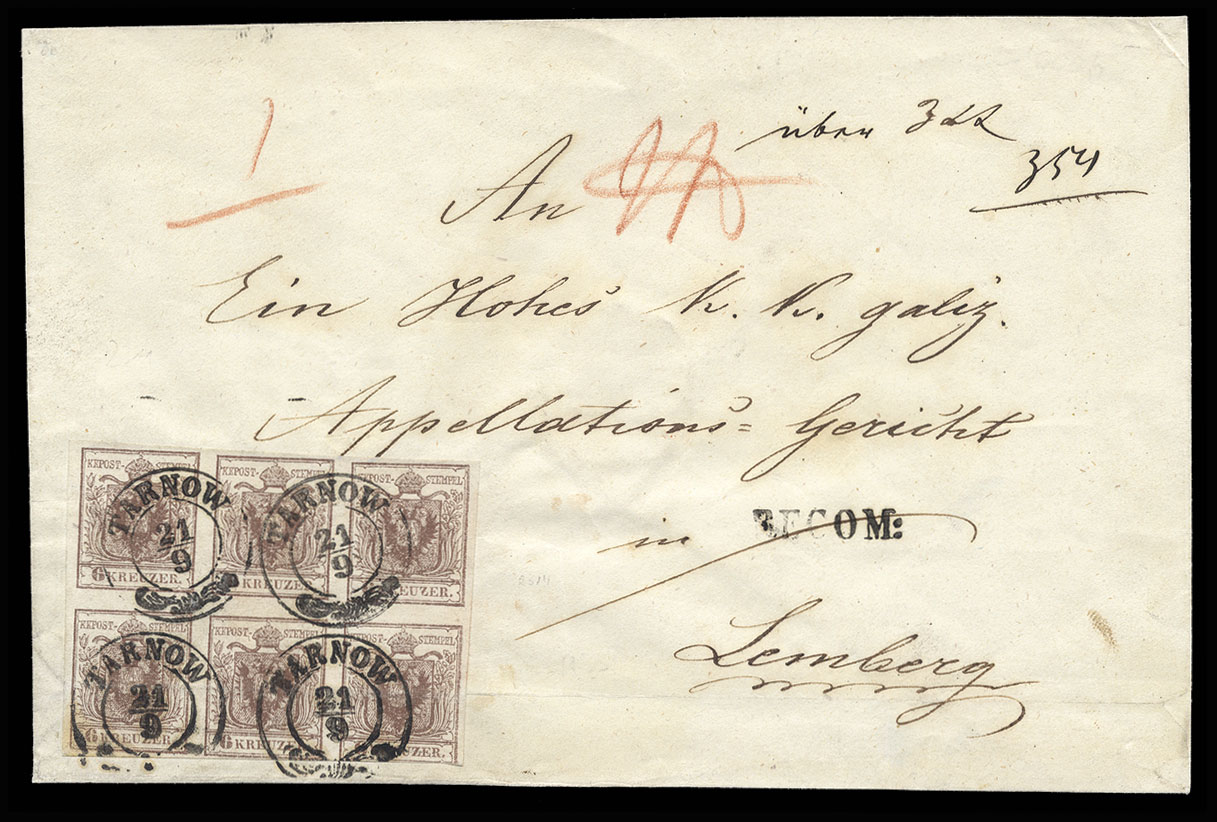 über 3
354
An
Ein Hohes K. K. galiz.
Appellations= Gericht
RECOM:
in
Lemberg
KKPOST-STEMPEL KKPOST-STEMPEL KKPOST-STEMPEL
TARNOW TARNOW
21/9 21/9
6 KREUZER. KREUZER. KREUZER.
KKPOST-STEMPEL KKPOST-STEMPEL KKPOST-STEMPEL
TARNOW TARNOW
21/9 21/9
6 KREUZER. 6 KREUZER. KREUZER.